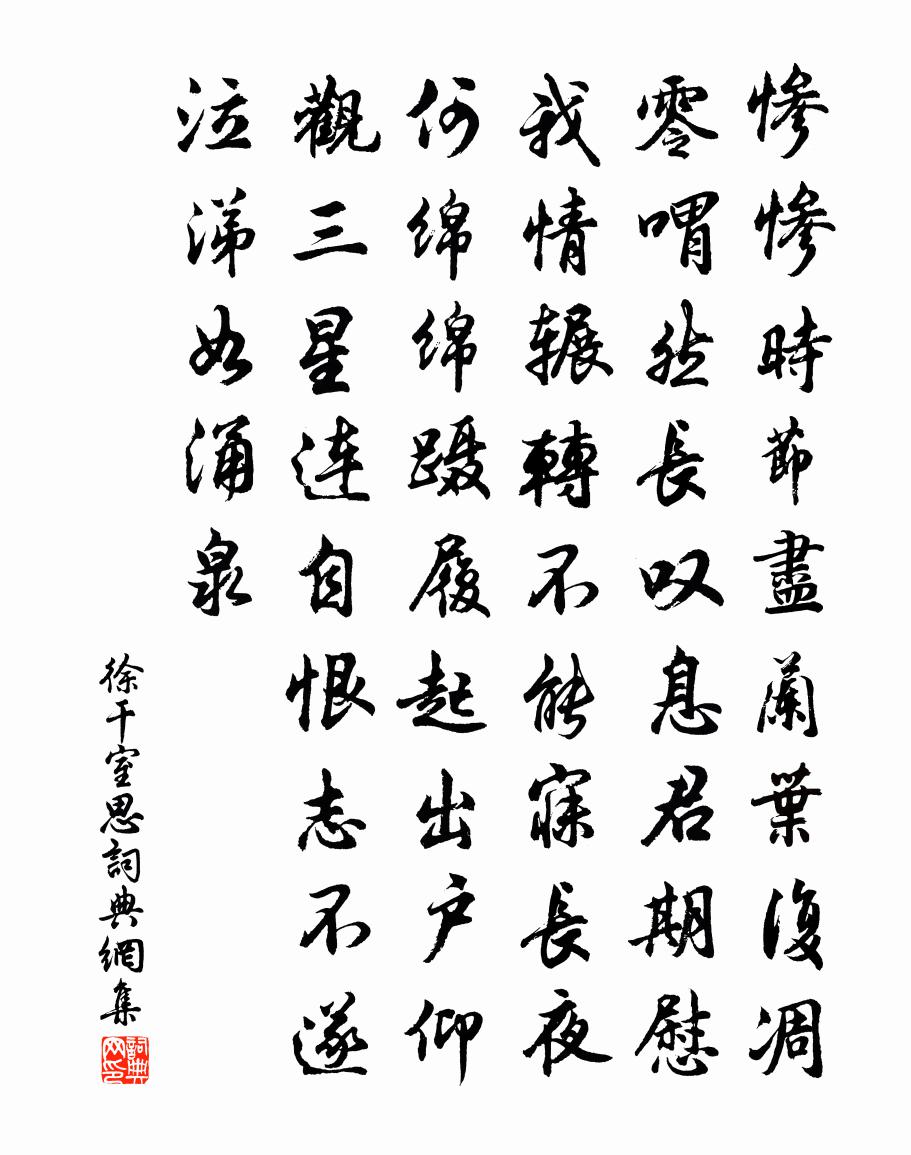 惨惨時節盡蘭葉復凋
零喟然長叹息君期慰
我情辗轉不能寐長夜
何绵绵蹑履起出户仰
觀三星连自恨志不遂
泣涕如涌泉
徐干室思詞典網集
詞典网印